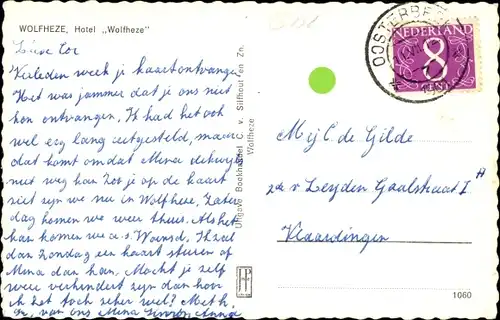 WOLFHEZE, Hotel „Wolfheze"
Lieve Cor
Verleden week je kaart ontvangen
Het was jammer dat je ons niet
kon ontvangen. Ik had het ook
wel erg lang uitgesteld, maar
dat komt omdat Mina
niet weg kan Zoals je op de kaart
ziet zijn we nu in Wolfheze, Zater
dag komen we weer thuis. Als het
kan komen we a.s. Woensd. Ik zal
dan Zondag een kaart sturen of
Mina dan kan. Mocht je zelf
weer verhinderd zijn dan hoor
ik het toch zeker wel? Met h.
gr. van ons Mina Anna
Uitgave Boekhandel v. Silfhout en Zn.
Wolfheze
OOSTERBEEK
NEDERLAND
8
CENT
Mej C. de Gilde
2de v Leyden Gaelstraat 1 A
Vlaardingen
1060